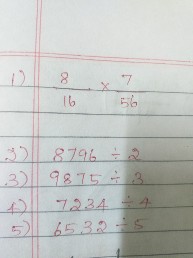 1) 8/16 × 7/56
2) 8796 ÷ 2
3) 9875 ÷ 3
4) 7234 ÷ 4
5) 6532 ÷ 5